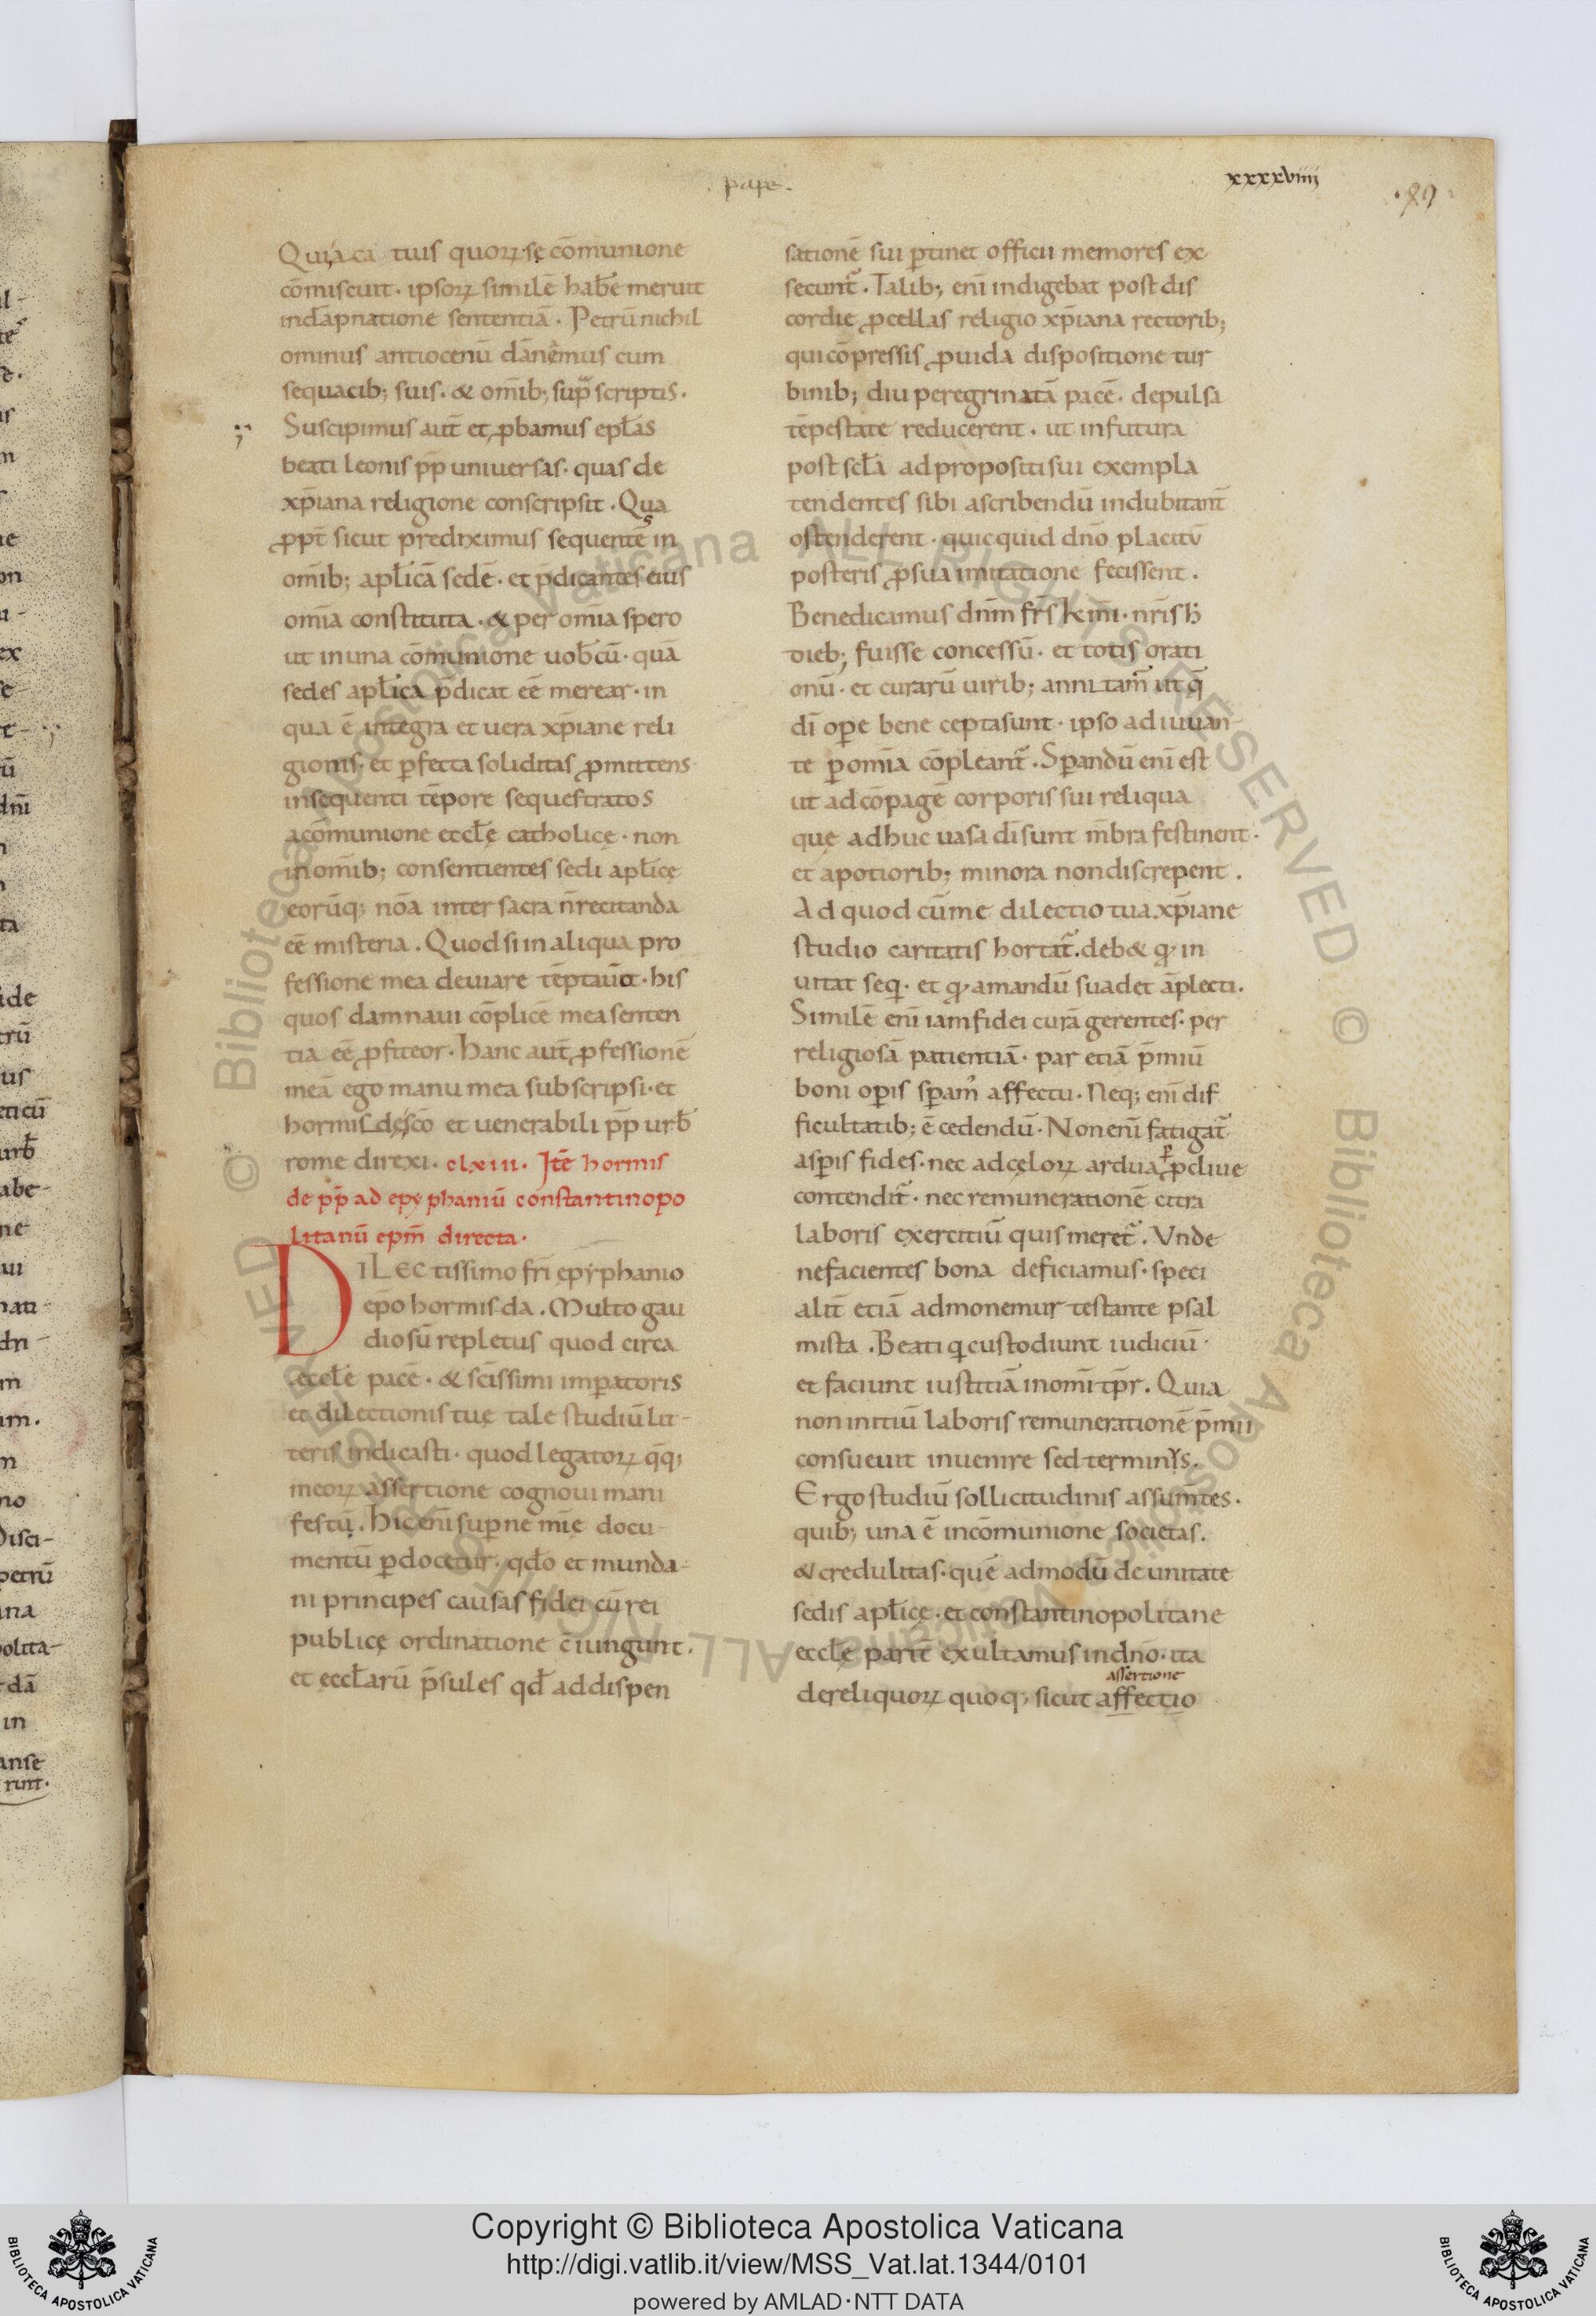 pape.
xxxxviiii
.89
Quia ca tius quoꝝ se cōmunione
cōmiscuit. ipsoꝝ similē hab̄e meruit
indāpnatione sententiā. Petrū nichil
ominus antiocenū dānemus cum
sequacib; suis. & om̄ib; sup̄ scriptis.
Suscipimus aut̄ et ꝓbamus epl̄as
beati leonis pp̄ universas. quas de
xp̄iana religione conscripsit. Qua
ꝓpt̄ sicut prediximus sequentes in
om̄ib; apl̄icā sedē. et p̄dicantes eius
om̄ia constituta. & per om̄ia spero
ut in una cōmunione uob̄cū. quā
sedes apl̄ica p̄dicat eē merear. in
qua ē integra et uera xp̄iane reli
gionis. et ꝑfecta soliditas ꝓmittens
insequenti tēpore sequestratos
acōmunione eccl̄ę catholicę. non
in om̄ib; consentientes sedi apl̄icę
eorūq; nōa inter sacra n̄ recitanda
eē misteria. Quod si in aliqua pro
fessione mea deuiare tēptauō. his
quos damnaui cōplicē mea senten
tia eē ꝓfiteor. Hanc aut̄ ꝓfessionē
meā ego manu mea subscripsi. et
hormisdę sc̄o et uenerabili pp̄ urb̄
rome direxi. clxiii. Itē hormis
de pp̄ ad epyphaniū constantinopo
litanū epm̄ directa.
DILEctissimo frī epyphanio
ep̄o hormisda. Multo gau
dio sū repletus quod circa
eccl̄e pacē. & sc̄issimi imꝑatoris
et dilectionis tuę tale studiū lit-
teris indicasti. quod legatoꝝ q̄q;
meoꝝ assertione cognoui mani
festū. Hic enī suꝑne mīe docu-
mentū ꝑdocetur. qdo et munda-
ni principes causas fidei cū rei
publicę ordinatione c̄iungunt.
et eccl̄arū p̄sules qd̄ ad dispen
sationē sui ꝑtinet officii memores ex
secunt̄. Talib; enī indigebat post dis
cordie ꝓcellas religio xp̄iana rectorib;
qui cōpressis ꝓuida dispositione tur
binib; diu peregrinatā pacē. depulsa
tēpestate reducerent. ut in futura
post scl̄a ad propositi sui exempla
tendentes sibi ascribendū indubitant̄
ostenderent. quicquid dn̄o placitū
posteris ꝓ sua imitatione fecissent.
Benedicamus dnm̄ fr̄s km̄i. nr̄is h̄
dieb; fuisse concessū. et totis orati
onū. et curarū uirib; annitam̄ ut q̄
dī oꝑe bene cepta sunt. ipso adiuuan-
te ꝑ om̄ia cōpleant̄. Sꝑandū enī est
ut ad cōpagē corporis sui reliqua
que adhuc uasa disunt m̄bra festinent.
et apotiorib; minora non discrepent.
Ad quod cū me dilectio tua xp̄iane
studio caritatis hortat̄. deb& q in
uitat seq. et q amandū suadet āplecti.
Similē enī iam fidei curā gerentes. per
religiosā patientiā. par etiā p̄miū
boni oꝑis sꝑam̄ affectu. Neq; enī dif
ficultatib; ē cedendū. Non enī fatigat̄
asꝑis fides. nec ad cęloꝝ ardua ꝓcliue
contendit̄. nec remunerationē citra
laboris exercitiū quis meret̄. Unde
ne facientes bona deficiamus. speci
alit̄ etiā admonemur testante psal
mista. Beati q custodiunt iudiciū.
et faciunt iustitiā in omī tp̄r. Quia
non initiū laboris remunerationē p̄mii
consueuit inuenire sed terminus.
Ergo studiū sollicitudinis assumtes.
quib; una ē in cōmunione societas.
& credulitas. quē admodū de unitate
sedis apl̄icę. et constantinopolitane
eccl̄e parit̄ exultamus in dn̄o. ita
assertione
de reliquoꝝ quoq; sicut affectio
Copyright © Biblioteca Apostolica Vaticana
http://digi.vatlib.it/view/MSS_Vat.lat.1344/0101
powered by AMLAD·NTT DATA